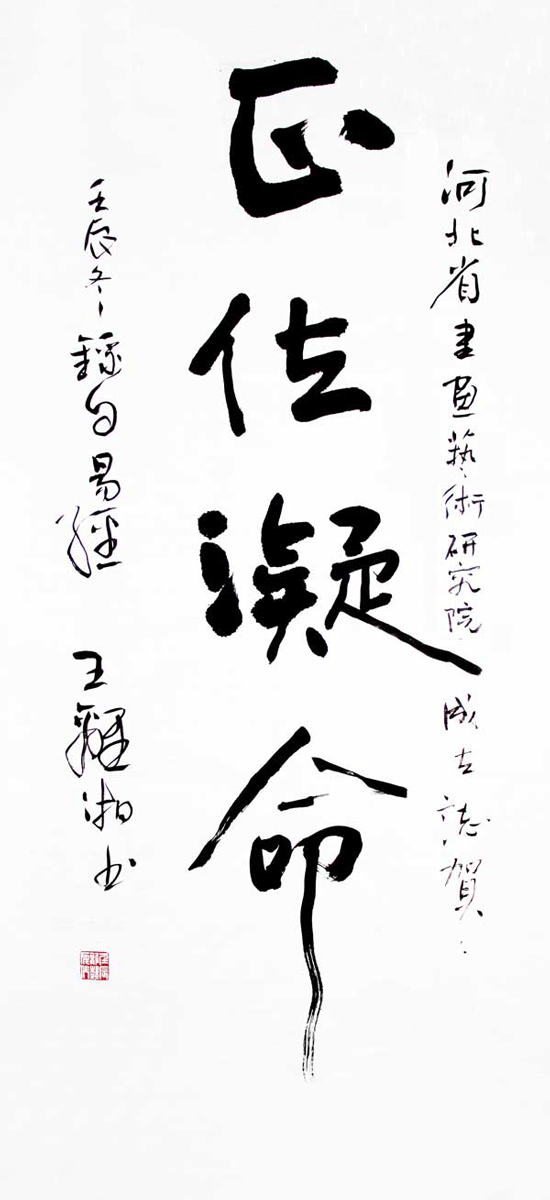 河北省書画藝術研究院 成立誌賀
正位凝命
壬辰冬錄自易經 王魯湘书